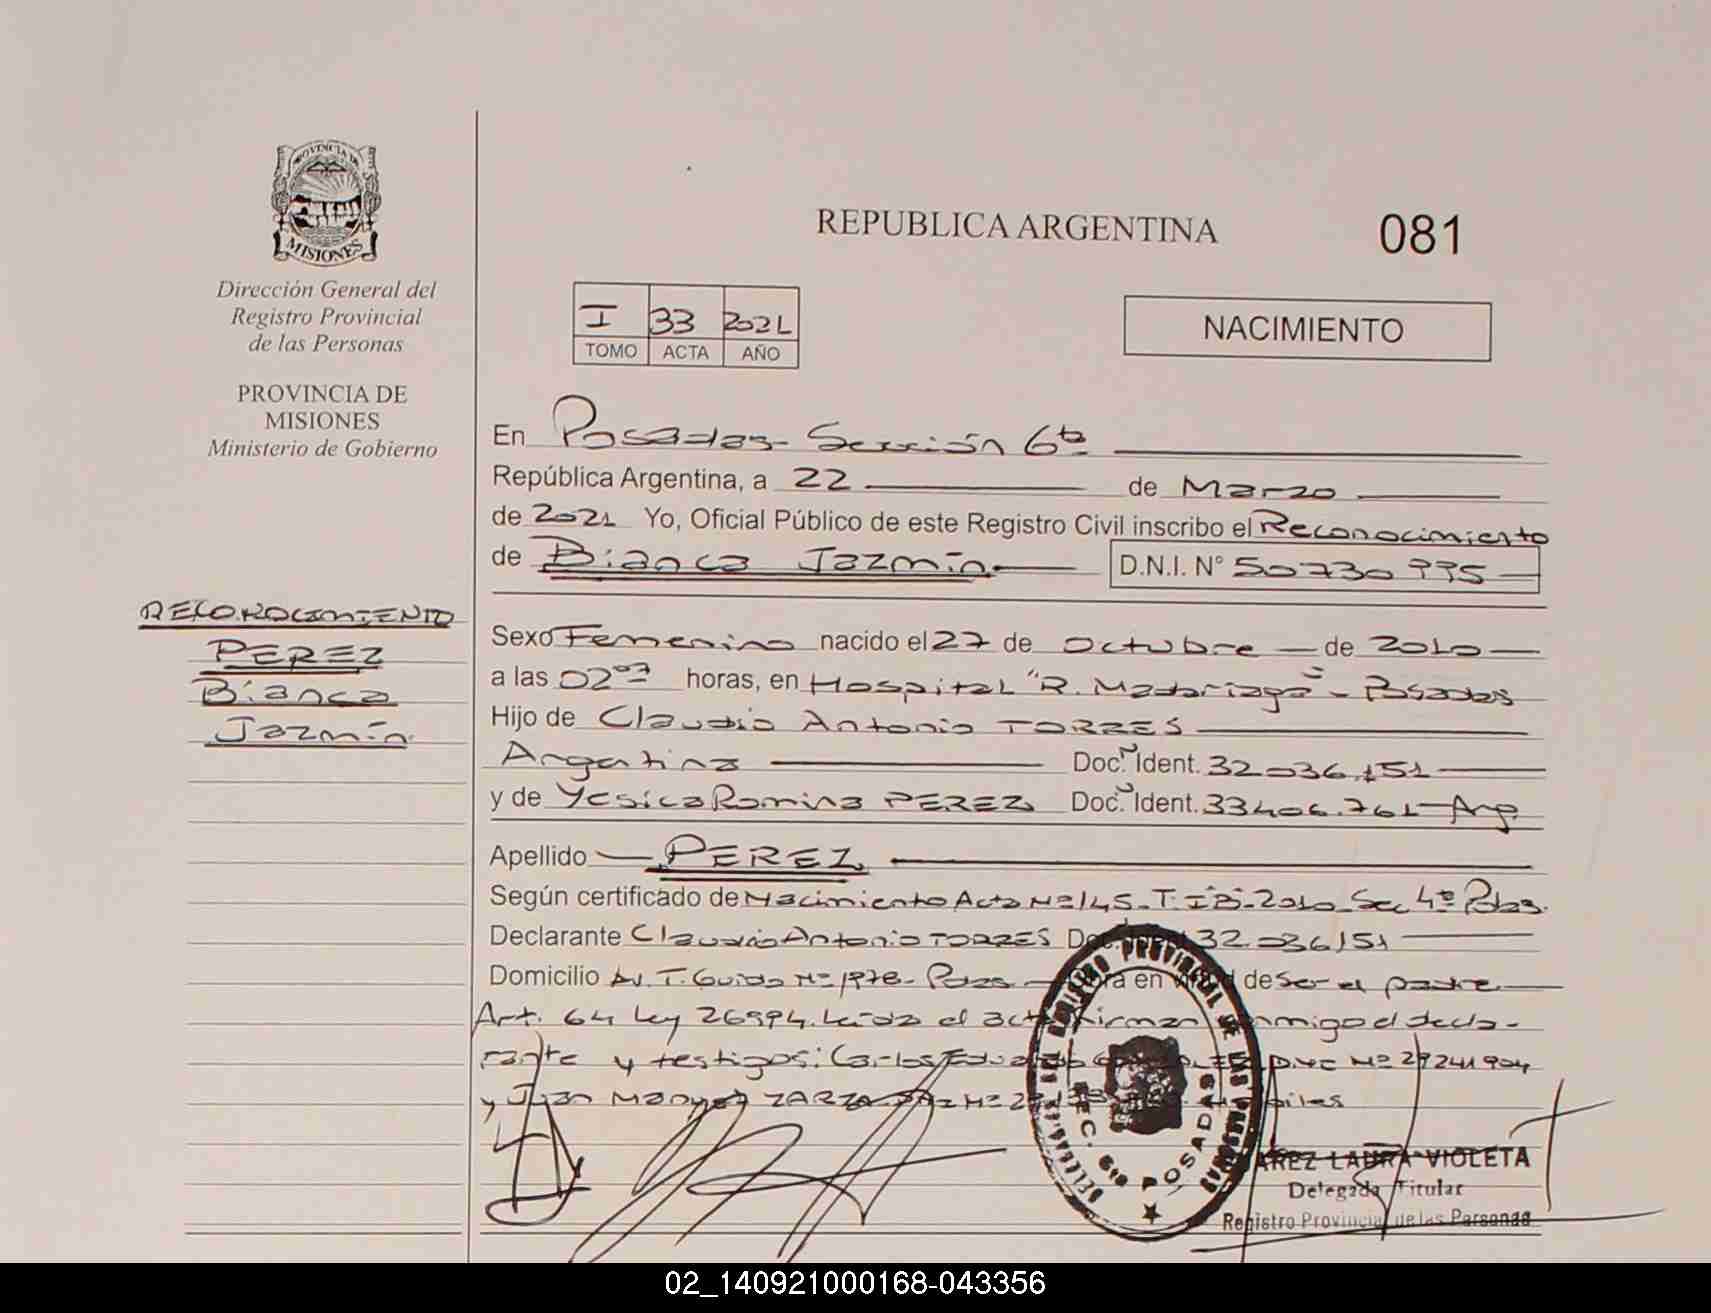 PROVINCIA DE
MISIONES
Dirección General del
Registro Provincial
de las Personas
PROVINCIA DE
MISIONES
Ministerio de Gobierno
RECONOCIMIENTO
PEREZ
Bianca
Jazmín
REPUBLICA ARGENTINA
081
I 33 2021
TOMO ACTA AÑO
NACIMIENTO
En Posadas - Sección 6ta
República Argentina, a 22 de Marzo
de 2021 Yo, Oficial Público de este Registro Civil inscribo el Reconocimiento
de Bianca Jazmín D.N.I. N° 50730995
Sexo Femenino nacido el 27 de Octubre de 2010
a las 02 horas, en Hospital "R. Madariaga" - Posadas
Hijo de Claudio Antonio TORRES
Argentina Doc. Ident. 32.036.151
y de Yesica Romina PEREZ Doc. Ident. 33406.761 - Arg.
Apellido PEREZ
Según certificado de Nacimiento Acta Nº 145 - T. - 2010 - Sec 4ª Pdas.
Declarante Claudio Antonio TORRES Doc. Ident. 32.036151
Domicilio Av. T. Guido Nº 1978 - Pdas en de ser el padre
Art. 64 Ley 26994. Leída el acta firman conmigo el decla-
rante y testigos: Carlos Eduardo DNI Nº 29241904
y Juan Manuel ZARZA Nº
DELEGACION DEL REGISTRO PROVINCIAL DE LAS PERSONAS
SEC. 6ta POSADAS
LAURA VIOLETA
Delegada Titular
Registro Provincial de las Personas
02_140921000168-043356